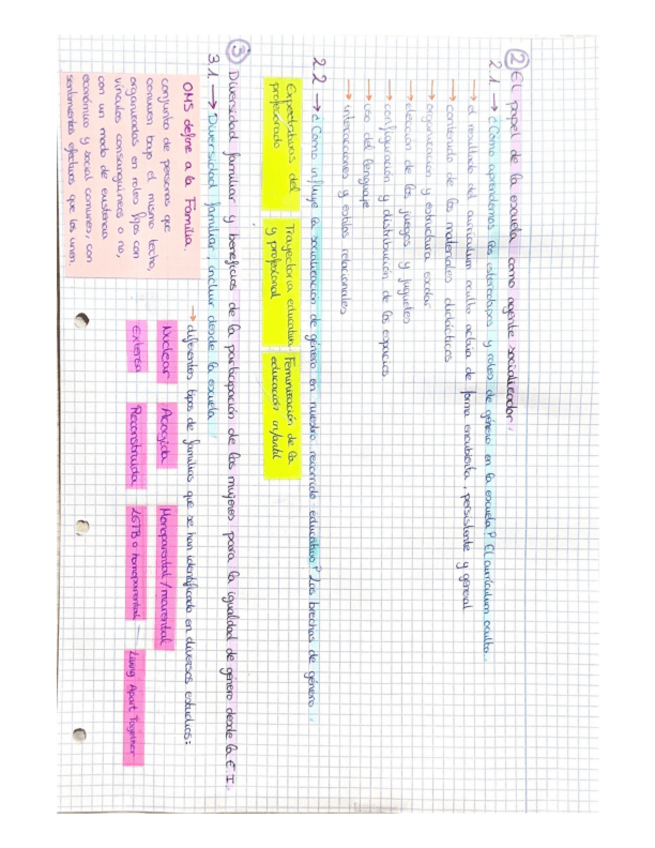 ② El papel de la escuela como agente socializador.
2.1 → ¿Como aprendemos los estereotipos y roles de género en la escuela? El currículum oculto.
→ el resultado del currículum oculto actúa de forma encubierta, persistente y general
→ contenido de los materiales didácticos
→ organización y estructura escolar
→ elección de los juegos y juguetes
→ configuración y distribución de los espacios
→ uso del lenguaje
→ interacciones y estilos relacionales
2.2 → ¿Como influye la socialización de género en nuestro recorrido educativo? Las brechas de género.
Expectativas del profesorado
Trayectoria educativa y profesional
Feminización de la educación infantil
③ Diversidad familiar y beneficios de la participación de las mujeres para la igualdad de género desde la E.I.
3.1. → Diversidad familiar, incluir desde la escuela
OMS define a la Familia
conjunto de personas que
conviven bajo el mismo techo,
organizadas en roles fijos con
vínculos consanguíneos o no,
con un modo de existencia
económico y social comunes, con
sentimientos afectivos que los unen.
→ diferentes tipos de familias que se han identificado en diversos estudios:
Nuclear Acogida Monoparental/marental
Extensa Reconstruida LGTB o homoparental — Living Apart Together